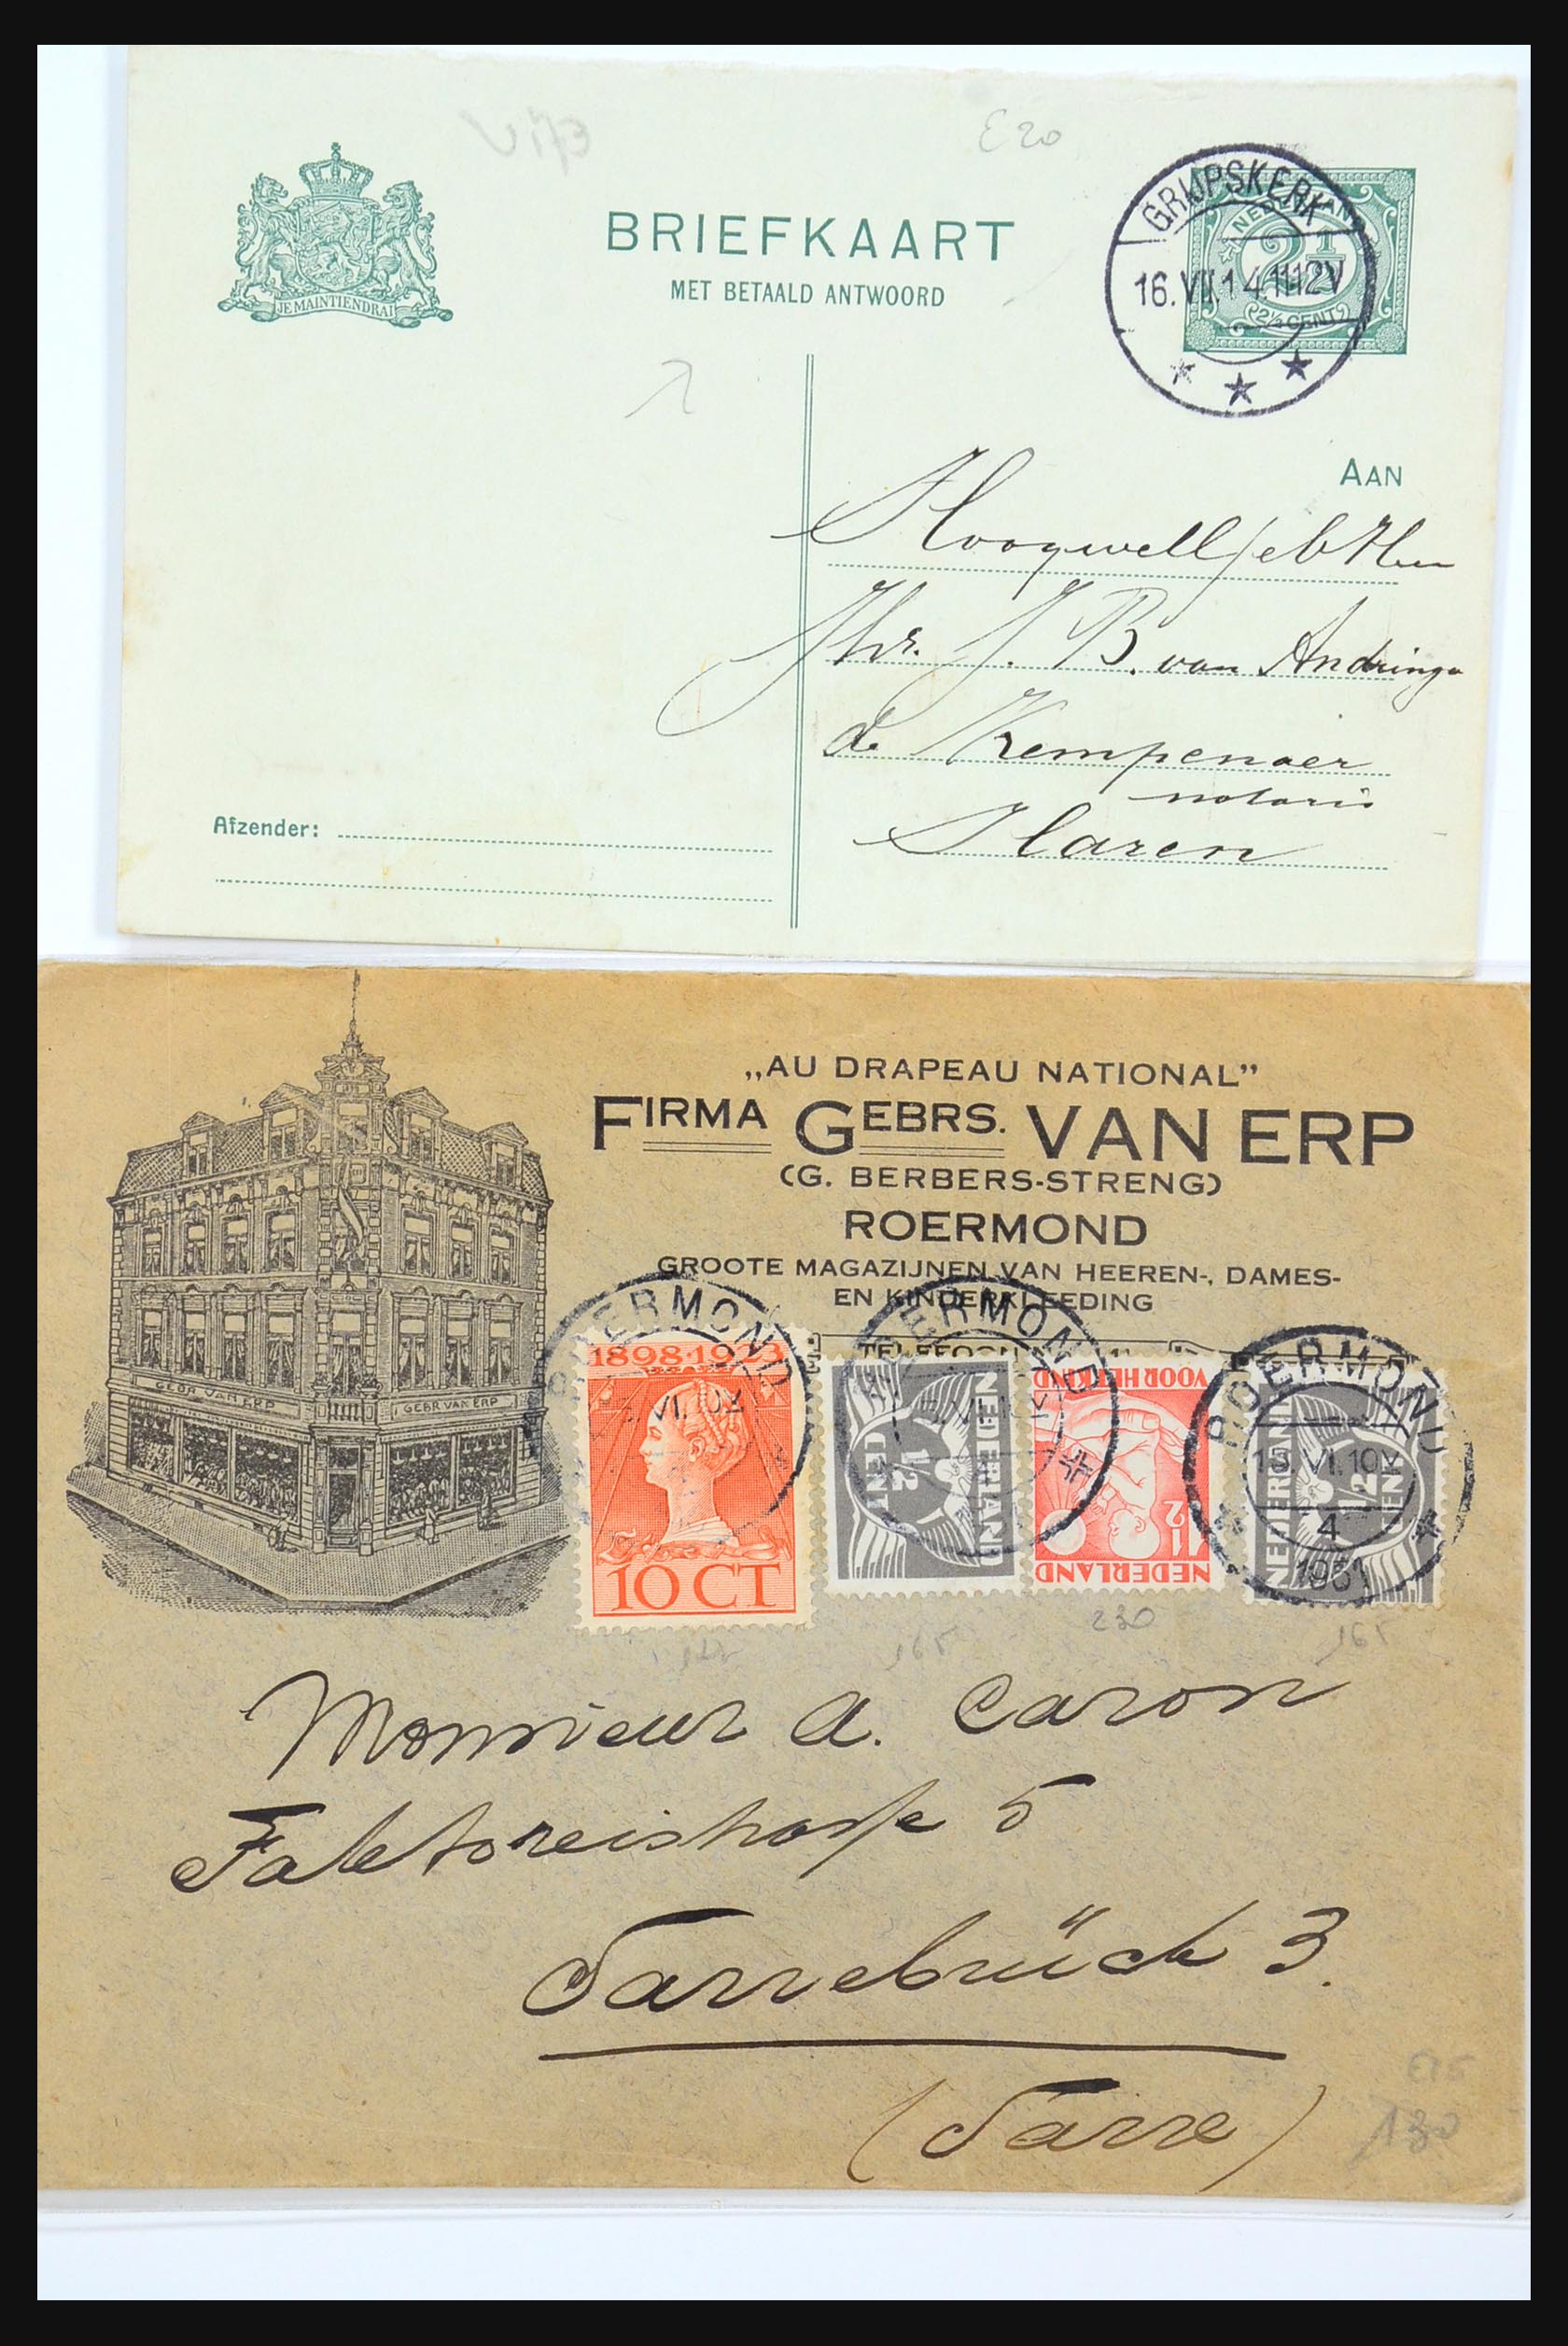 E20
BRIEFKAART
MET BETAALD ANTWOORD
JE MAINTIENDRAI
GRIJPSKERK
16.VII.14.11-12V
NEDERLAND
2½
2½ CENT
AAN
Hoogwellgeb Heer
Jhr. J. B. van Andringa
de Kempenaer
notaris
Haren
Afzender:
„AU DRAPEAU NATIONAL”
FIRMA GEBRS. VAN ERP
(G. BERBERS-STRENG)
ROERMOND
GROOTE MAGAZIJNEN VAN HEEREN-, DAMES-
EN KINDERKLEEDING
TELEFOON No.
GEBR VAN ERP
GEBR. VAN ERP
ROERMOND
VI.10V
1898·1923
10 CT
ROERMOND
NEDERLAND
½
CENT
VOOR HET KIND
1½
NEDERLAND
ROERMOND
15.VI.10V
4
1931
NEDERLAND
½
CENT
165
230
165
Monsieur A. Caron
Faktoreistrasse 5
Sarrebrück 3.
(Sarre)
E15
130